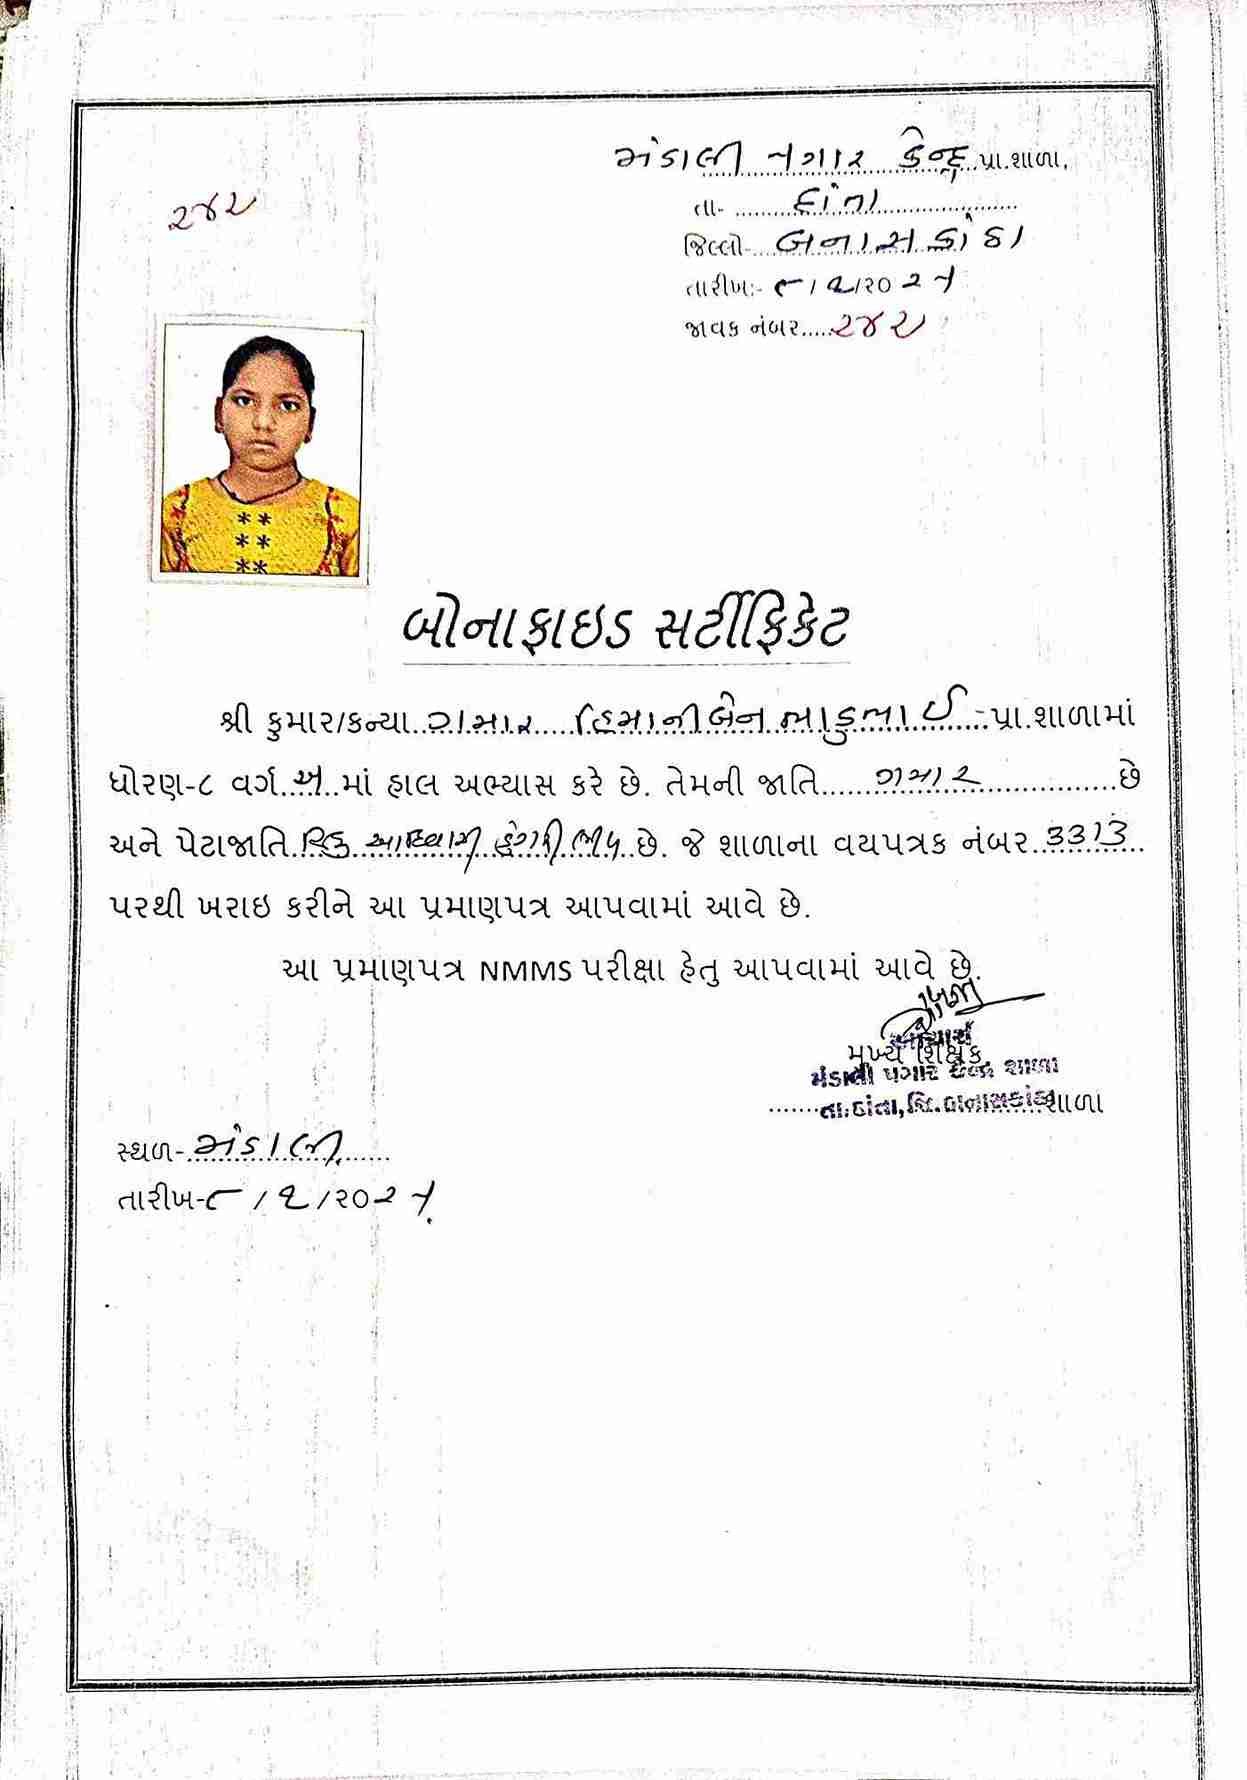 મંડાલી પગાર કેન્દ્ર પ્રા.શાળા,
તા- દાંતા
૨૪૨
જિલ્લો- બનાસકાંઠા
તારીખ:- ૯/૨/૨૦૨૫
જાવક નંબર.....૨૪૨
બોનાફાઇડ સર્ટીફિકેટ
શ્રી કુમાર/કન્યા..ગમાર હિમાનીબેન ભાડુભાઈ પ્રા.શાળામાં
ધોરણ-૮ વર્ગ..અ..માં હાલ અભ્યાસ કરે છે. તેમની જાતિ.....ગમાર.....છે
અને પેટાજાતિ હિન્દુ આદિવાસી ડુંગરી ભીલ છે. જે શાળાના વયપત્રક નંબર..૩૩૧૩
પરથી ખરાઇ કરીને આ પ્રમાણપત્ર આપવામાં આવે છે.
આ પ્રમાણપત્ર NMMS પરીક્ષા હેતુ આપવામાં આવે છે.
આચાર્ય
મુખ્ય શિક્ષક,
મંડાલી પગાર કેન્દ્ર શાળા
તા.દાંતા,જિ.બનાસકાંઠા શાળા
સ્થળ- મંડાલી
તારીખ-૯/૨/૨૦૨૫